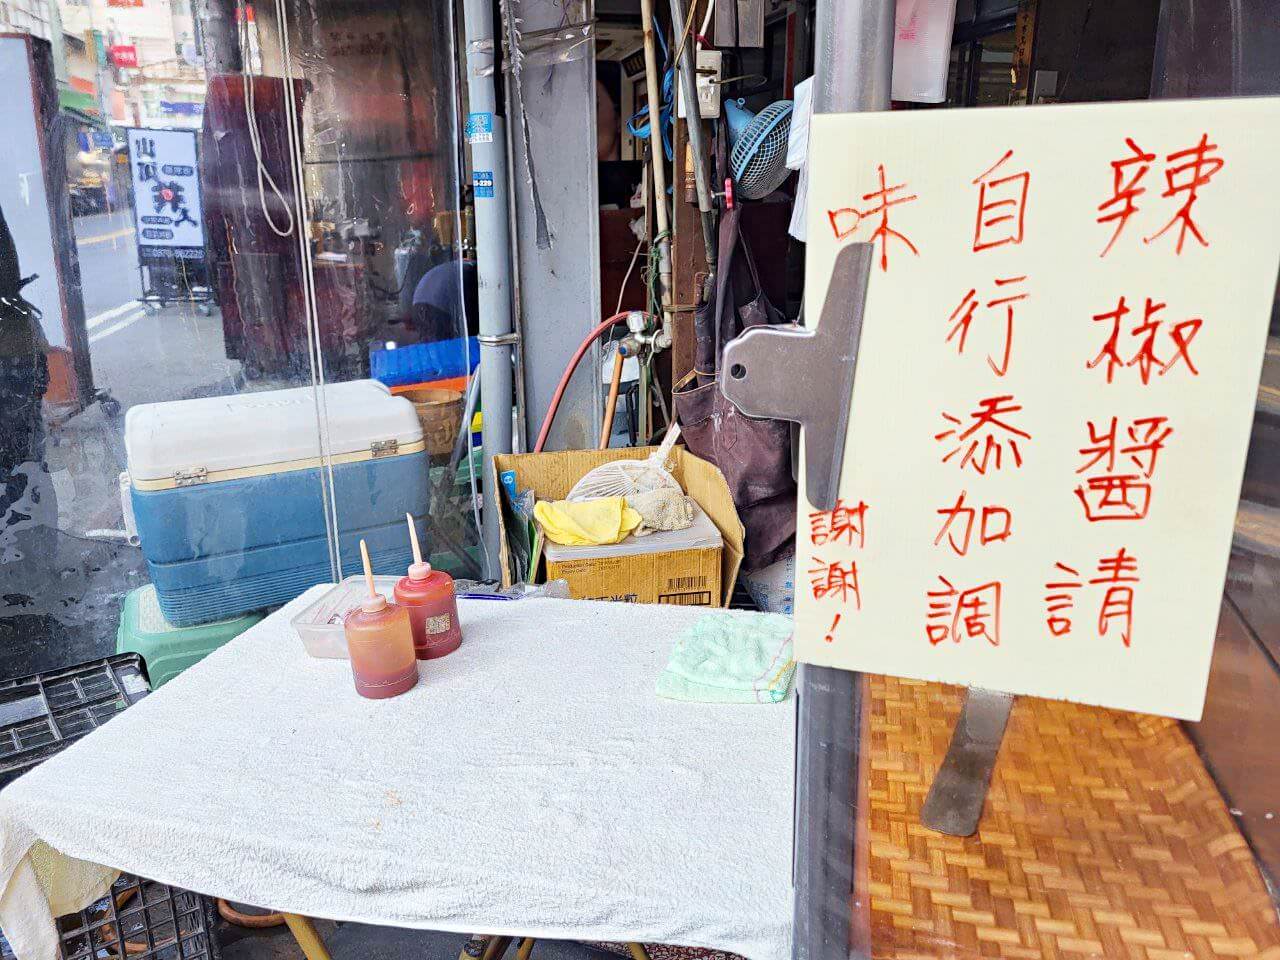 辣椒醬請
自行添加調
味
謝謝！